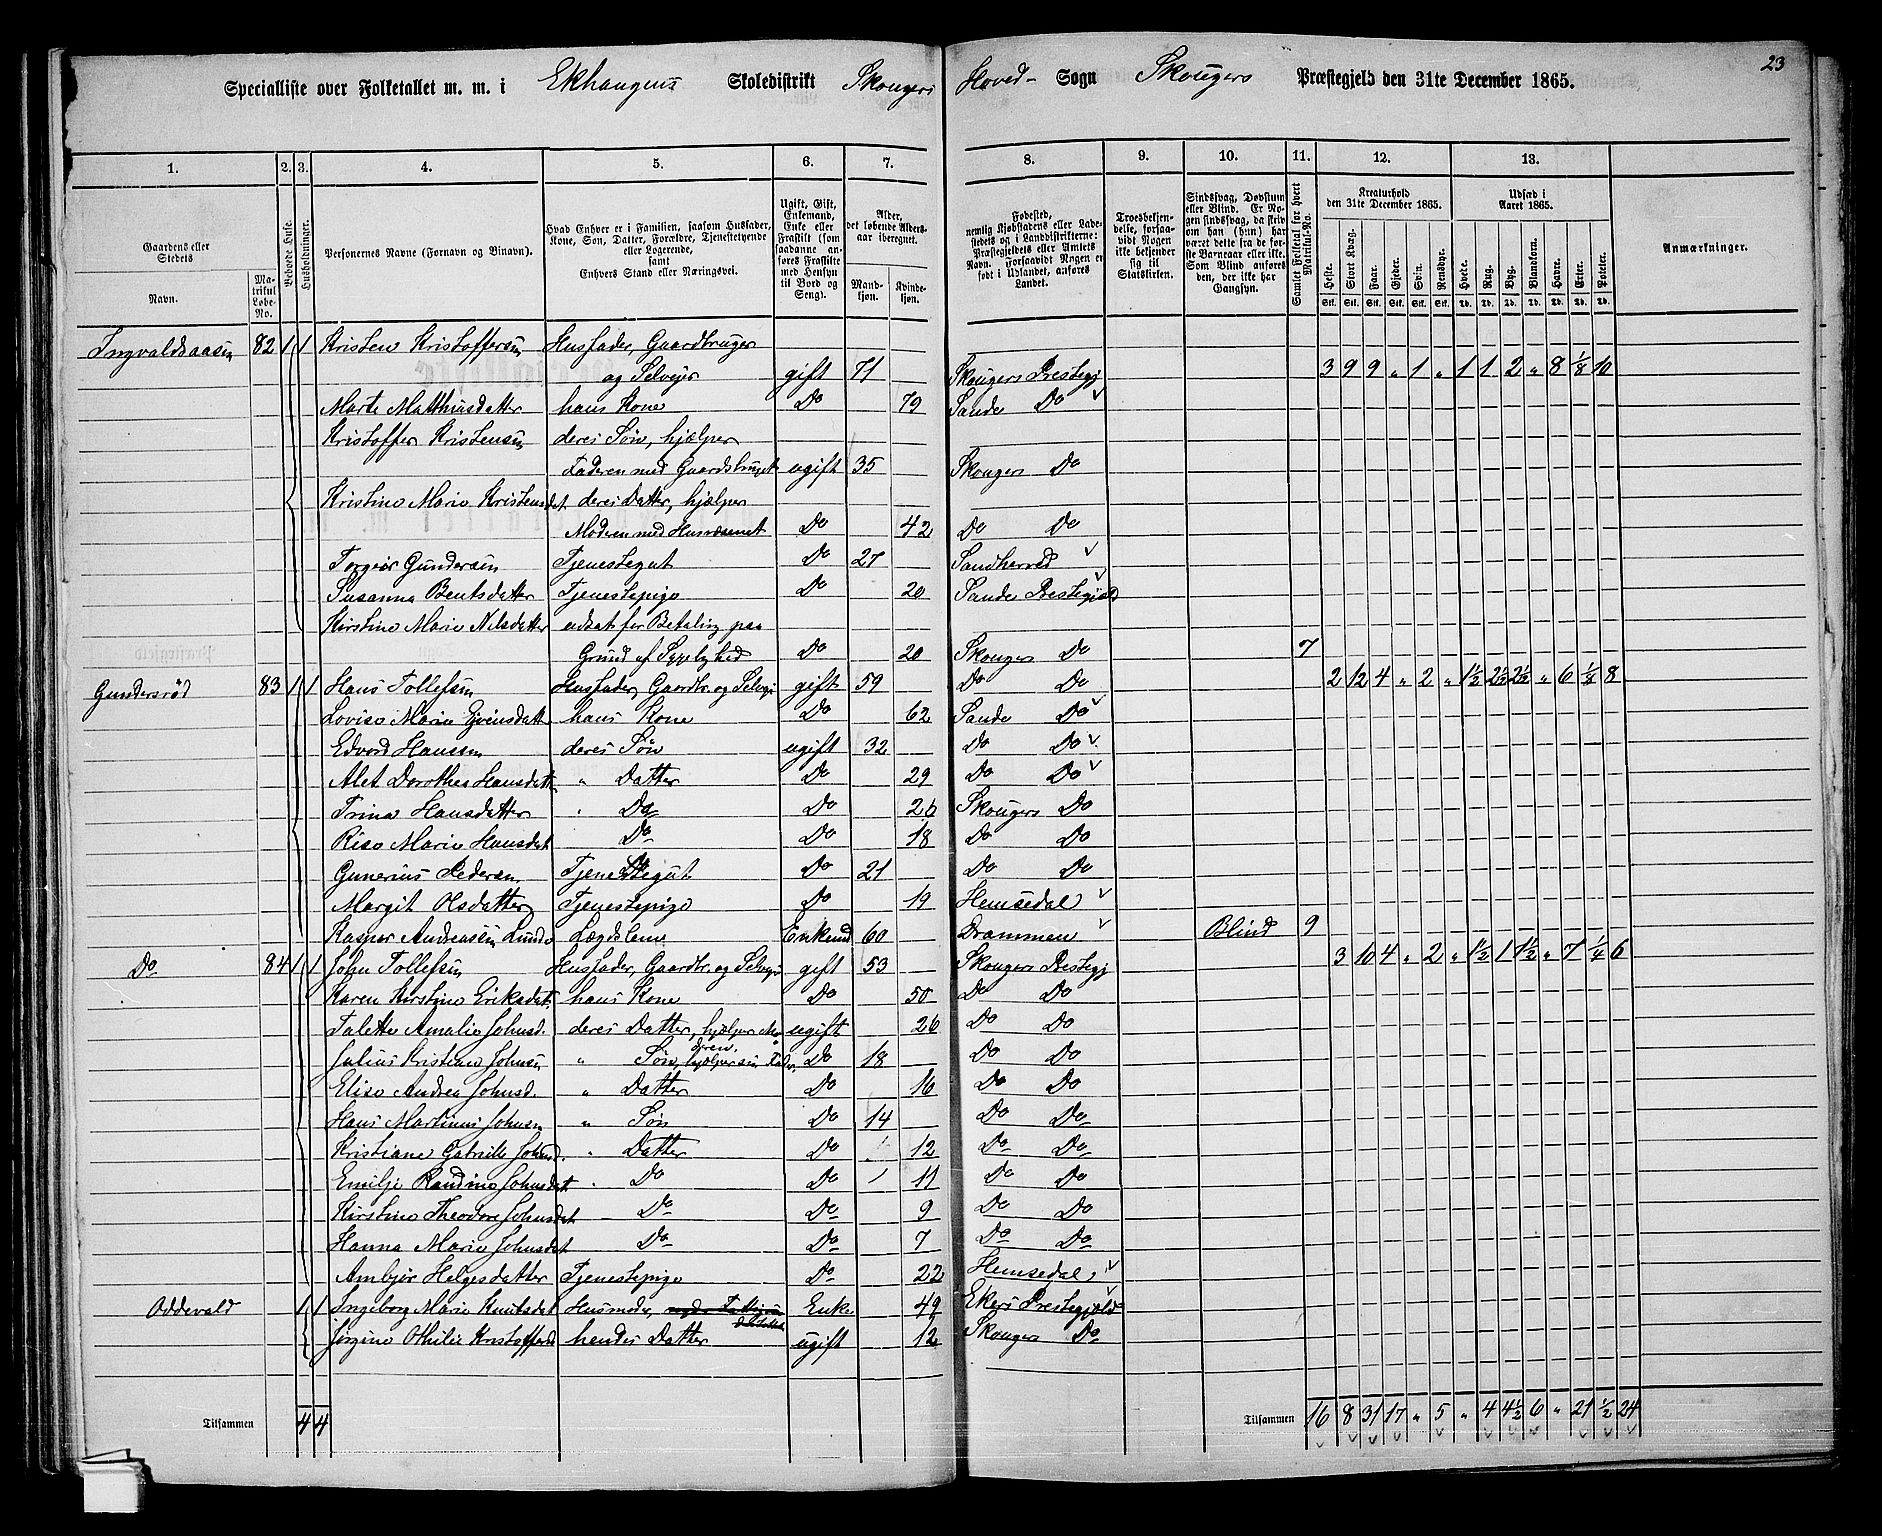 23
Specialliste over Folketallet m. m. i Ekhaugens Skoledistrikt Skougers Hoved- Sogn Skougers Præstegjeld den 31te December 1865.
1. 2. 3. 4. 5. 6. 7. 8. 9. 10. 11. 12. 13.
Gaardens eller Stedets Navn. Matrikul Løbe-No. Beboede Huse. Husholdninger. Personernes Navne (Fornavn og Binavn). Hvad Enhver er i Familien, saasom Husfader, Kone, Søn, Datter, Forældre, Tjenestetyende eller Logerende, samt Enhvers Stand eller Næringsvei. Ugift, Gift, Enkemand, Enke eller Fraskilt (som saadanne anføres Fraskilte med Hensyn til Bord og Seng). Alder, det løbende Aldersaar iberegnet. Mandkjøn. Kvindekjøn. Fødested, nemlig Kjøbstadens eller Ladestedets og i Landdistrikterne: Præstegjeldets eller Amtets Navn. Forsaavidt Nogen er født i Udlandet, anføres Landet. Troesbekjendelse, forsaavidt Nogen ikke bekjender sig til Statskirken. Sindssvag, Døvstum eller Blind. Er Nogen sindssvag, da skriv om han (hun) har været dette fra de første Barneaar eller ikke. Som Blind anføres den, der ikke har Gangsyn. Samlet Folketal for hvert Matrikul-No. Kreaturhold den 31te December 1865. Heste. Stort Kvæg. Faar. Gjeder. Svin. Rensdyr. Udsæd i Aaret 1865. Hvede. Rug. Byg. Blandkorn. Havre. Erter. Poteter. Anmærkninger.
Ingvaldsaasen 82 1 1 Kristen Kristoffersen Husfader, Gaardbruger
og Selveier gift 71 Skougers Prestegj 3 9 9 „ 1 „ 1 1 2 „ 8 1/8 10
Marte Matthiasdatter hans Kone Do 79 Sande Do
Kristoffer Kristensen deres Søn, hjælper
Faderen med Gaardsbruget ugift 35 Skougers Do
Kristine Marie Kristensdat deres Datter, hjælper
Moderen med Husvæsenet Do 42 Do Do
Torgeir Gundersen Tjenestegut Do 27 Sandherred
Susanna Bentsdatter Tjenestepige Do 20 Sande Prestegjeld
Kirstine Marie Nilsdatter udsat for Betaling paa
Grund af Sygelighed Do 20 Skouger Do 7
Gundersrød 83 1 1 Hans Tollefsen Husfader, Gaardbr. og Selvei gift 59 Do Do 2 12 4 „ 2 „ 1½ 2½ 2½ „ 6 1/8 8
Lovise Marie Eivensdatt hans Kone Do 62 Sande Do
Edvard Hansen deres Søn ugift 32 Do Do
Alet Dorothea Hansdatt „ Datter Do 29 Do Do
Trina Hansdatter „ Do Do 26 Skougers Do
Rise Marie Hansdat Do Do 18 Do Do
Gunerius Pedersen Tjenestegut Do 21 Do Do
Margit Olsdatter Tjenestepige Do 19 Hemsedal
Kasper Andreassen Lunde Lægdslem Enkemd 60 Drammen Blind 9
Do 84 1 1 John Tollefsen Husfader, Gaardbr. og Selvei gift 53 Skougers Prestegj 3 10 4 „ 2 „ 1½ 1 1½ „ 7 ¼ 6
Karen Kirstine Eriksdat. hans Kone Do 50 Do Do
Talette Amalie Johnsd. deres Datter, hjælper Mo ugift 26 Do Do
Julius Kristian Johnsen „ Søn, hjælper sin Fader Do 18 Do Do
deren.
Elise Andrea Johnsd. „ Datter Do 16 Do Do
Hans Martinus Johnsen „ Søn Do 14 Do Do
Kristiane Gabrielle Johnsd. „ Datter Do 12 Do Do
Emilje Randine Johnsdatt „ Do Do 11 Do Do
Kirstine Theodore Johnsdat Do Do 9 Do Do
Hanna Marie Johnsdat Do Do 7 Do Do
Ambjør Helgesdatter Tjenestepige Do 22 Hemsedal
Oddevald 1 1 Ingeborg Marie Knutsdat Husmoder, Enke 49 Ekers Prestegjeld
Jørgine Othilie Kristoffersd hendes Datter ugift 12 Skouger Do
Tilsammen 4 4 Tilsammen 16 8 31 17 „ 5 „ 4 4½ 6 „ 21 ½ 24